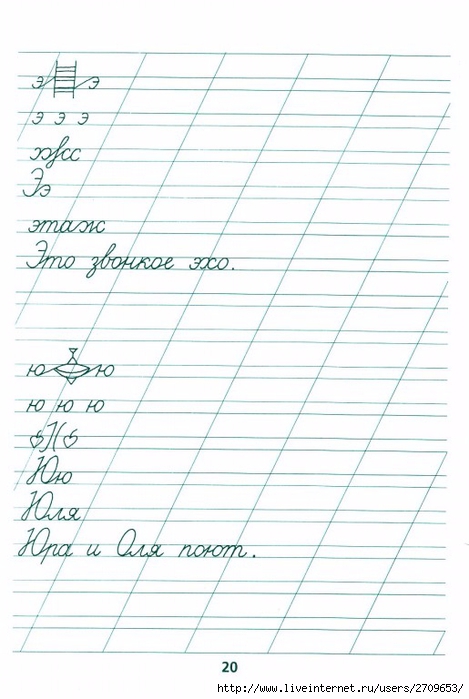 э э
э э э
Ээ
этаж
Это звонкое эхо.
ю ю
ю ю ю
Юю
Юля
Юра и Оля поют.
20
http://www.liveinternet.ru/users/2709653/